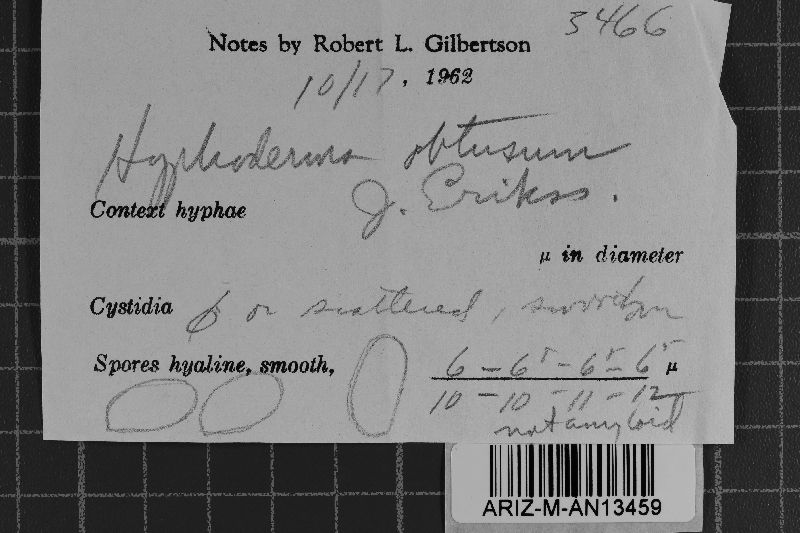 3466
Notes by Robert L. Gilbertson
10/17, 1962
Hyphoderma obtusum
J. Erikss.
Context hyphae
μ in diameter
Cystidia or scattered,
Spores hyaline, smooth, 6 - 6⁵ - 6⁵ - 6⁵ μ
10 - 10 - 11 - 12
not amyloid
ARIZ-M-AN13459